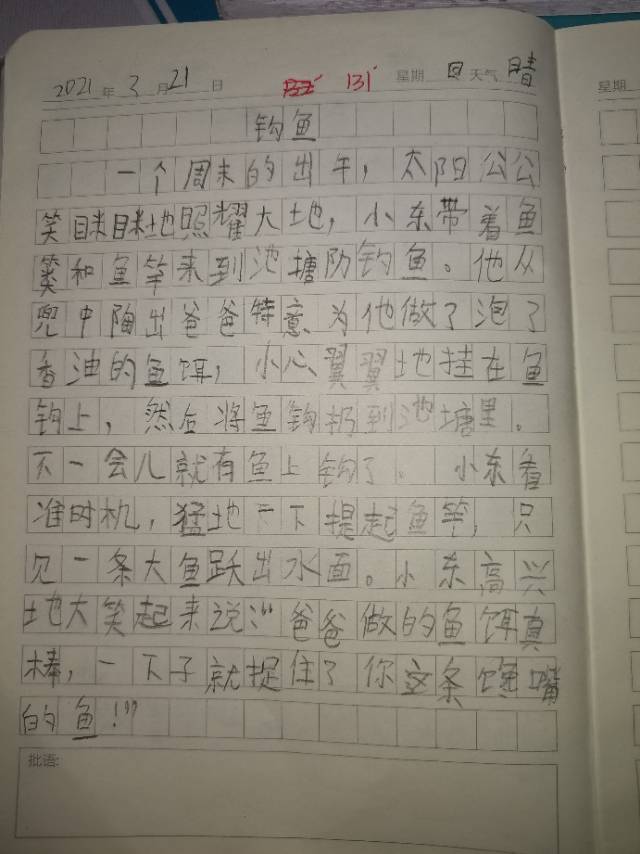 2021年3月21日 131 星期日天气晴
钓鱼
一个周末的出午，太阳公公
笑眯眯地照耀大地，小东带着鱼
篓和鱼竿来到池塘防钓鱼。他从
兜中陶出爸爸特意为他做了泡了
香油的鱼饵，小心翼翼地挂在鱼
钩上，然后将鱼钩扔到池塘里。
不一会儿就有鱼上钩了。小东看
准时机，猛地一下提起鱼竿，只
见一条大鱼跃出水面。小东高兴
地大笑起来说：“爸爸做的鱼饵真
棒，一下子就捉住了你这条馋嘴
的鱼！”
批语:
星期